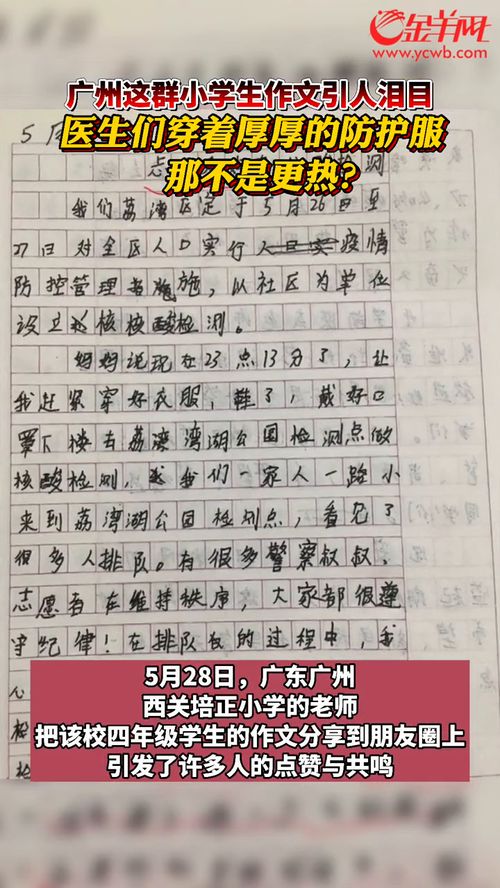 金羊网
www.ycwb.com
广州这群小学生作文引人泪目
医生们穿着厚厚的防护服
那不是更热?
5
测
我们荔湾区定于5月26日至
27日对全区人口实行疫情
防控管理施，以社区为单位
设立核酸检测。
妈妈说现在23点13分了，让
我赶紧穿好衣服，鞋了，戴好口
罩下楼去荔湾湾湖公园检测点做
核酸检测，我们一家人一路小
来到荔湾湖公园检测点，看见了
很多人排队。有很多警察叔叔、
志愿者在维持秩序，大家都很遵
守纪律！在排队的过程中，我
心
5月28日，广东广州
西关培正小学的老师
把该校四年级学生的作文分享到朋友圈上
引发了许多人的点赞与共鸣